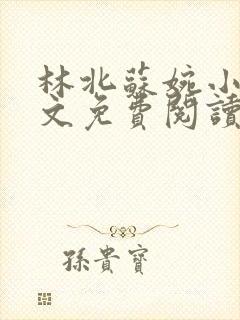 林北蘇婉小
文免費閱讀
孫貴寶